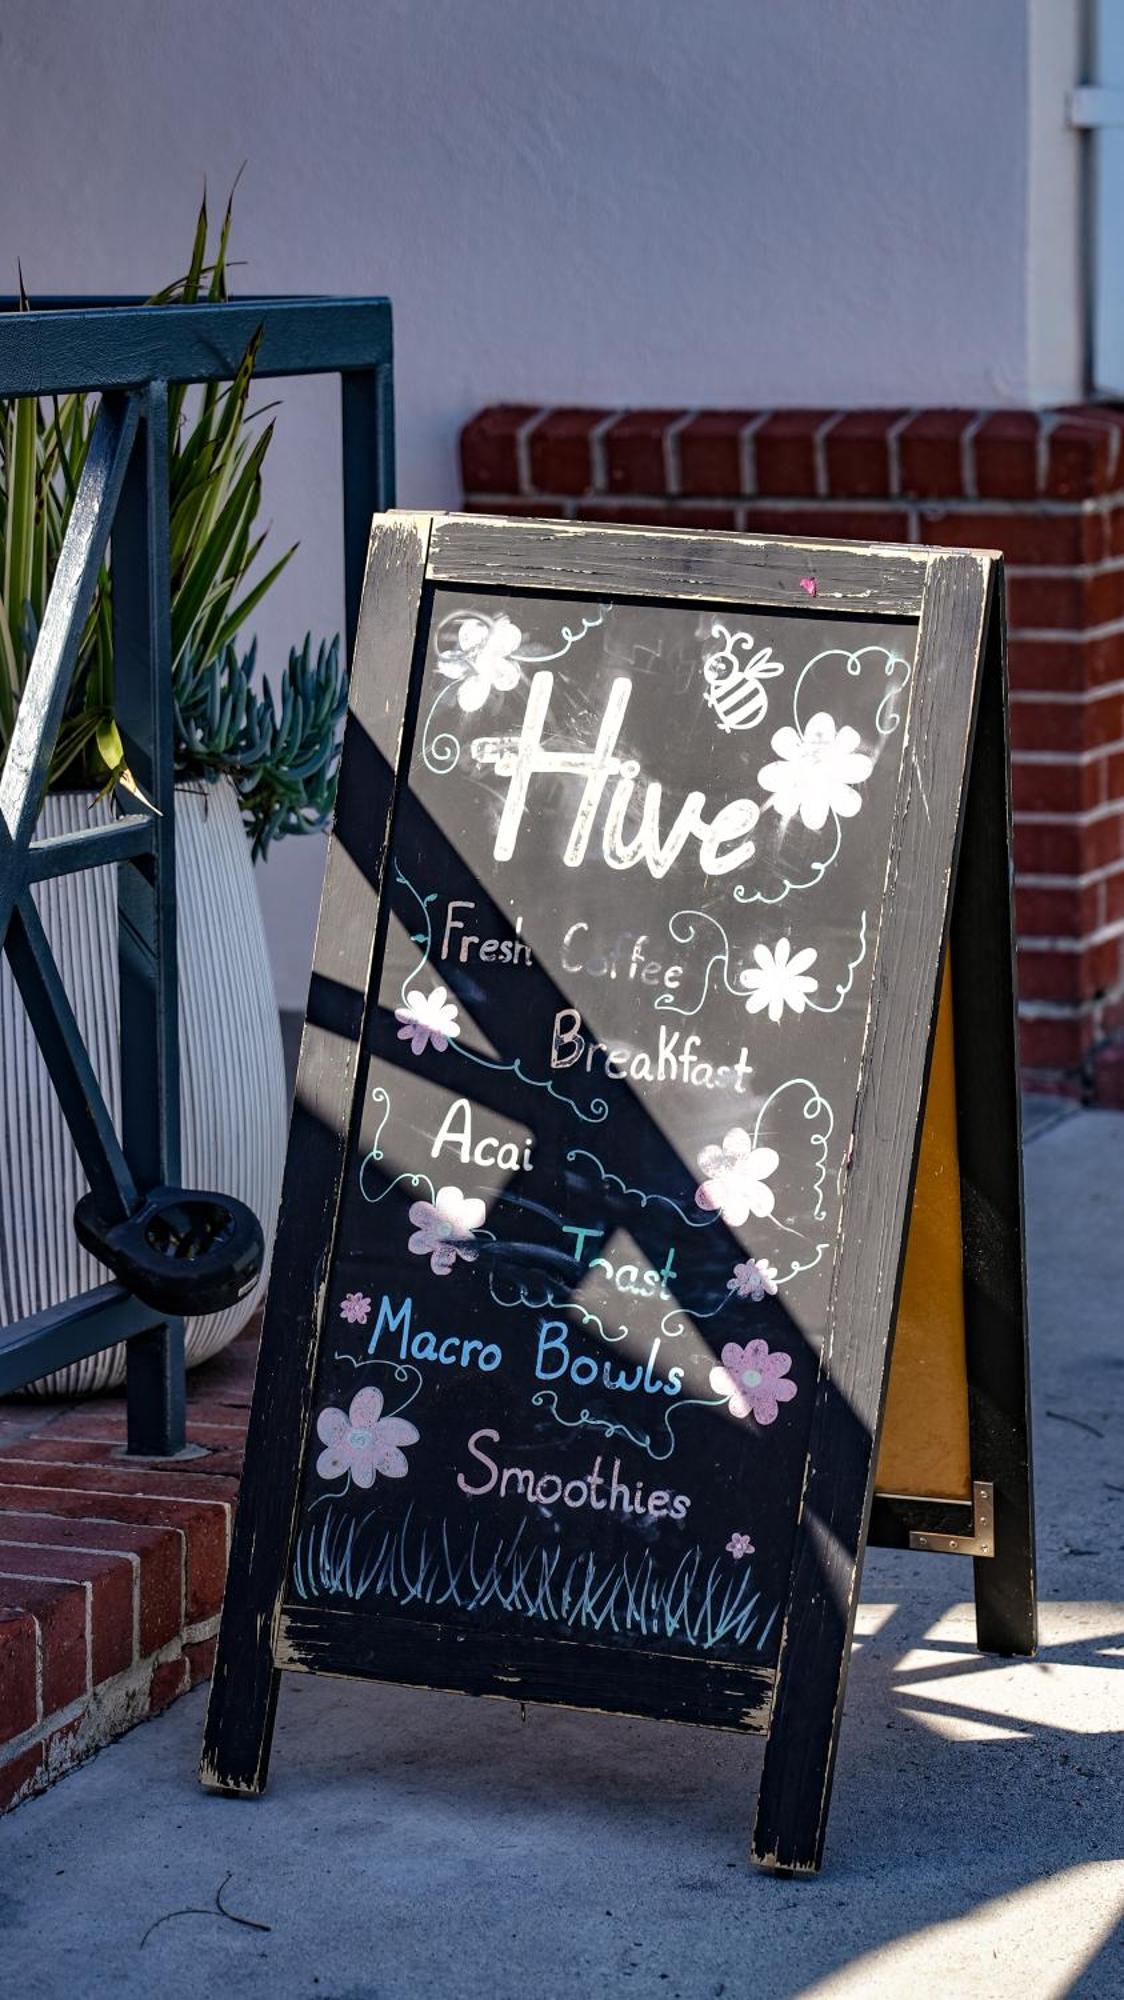 Hive
Fresh Coffee
Breakfast
Acai
Toast
Macro Bowls
Smoothies